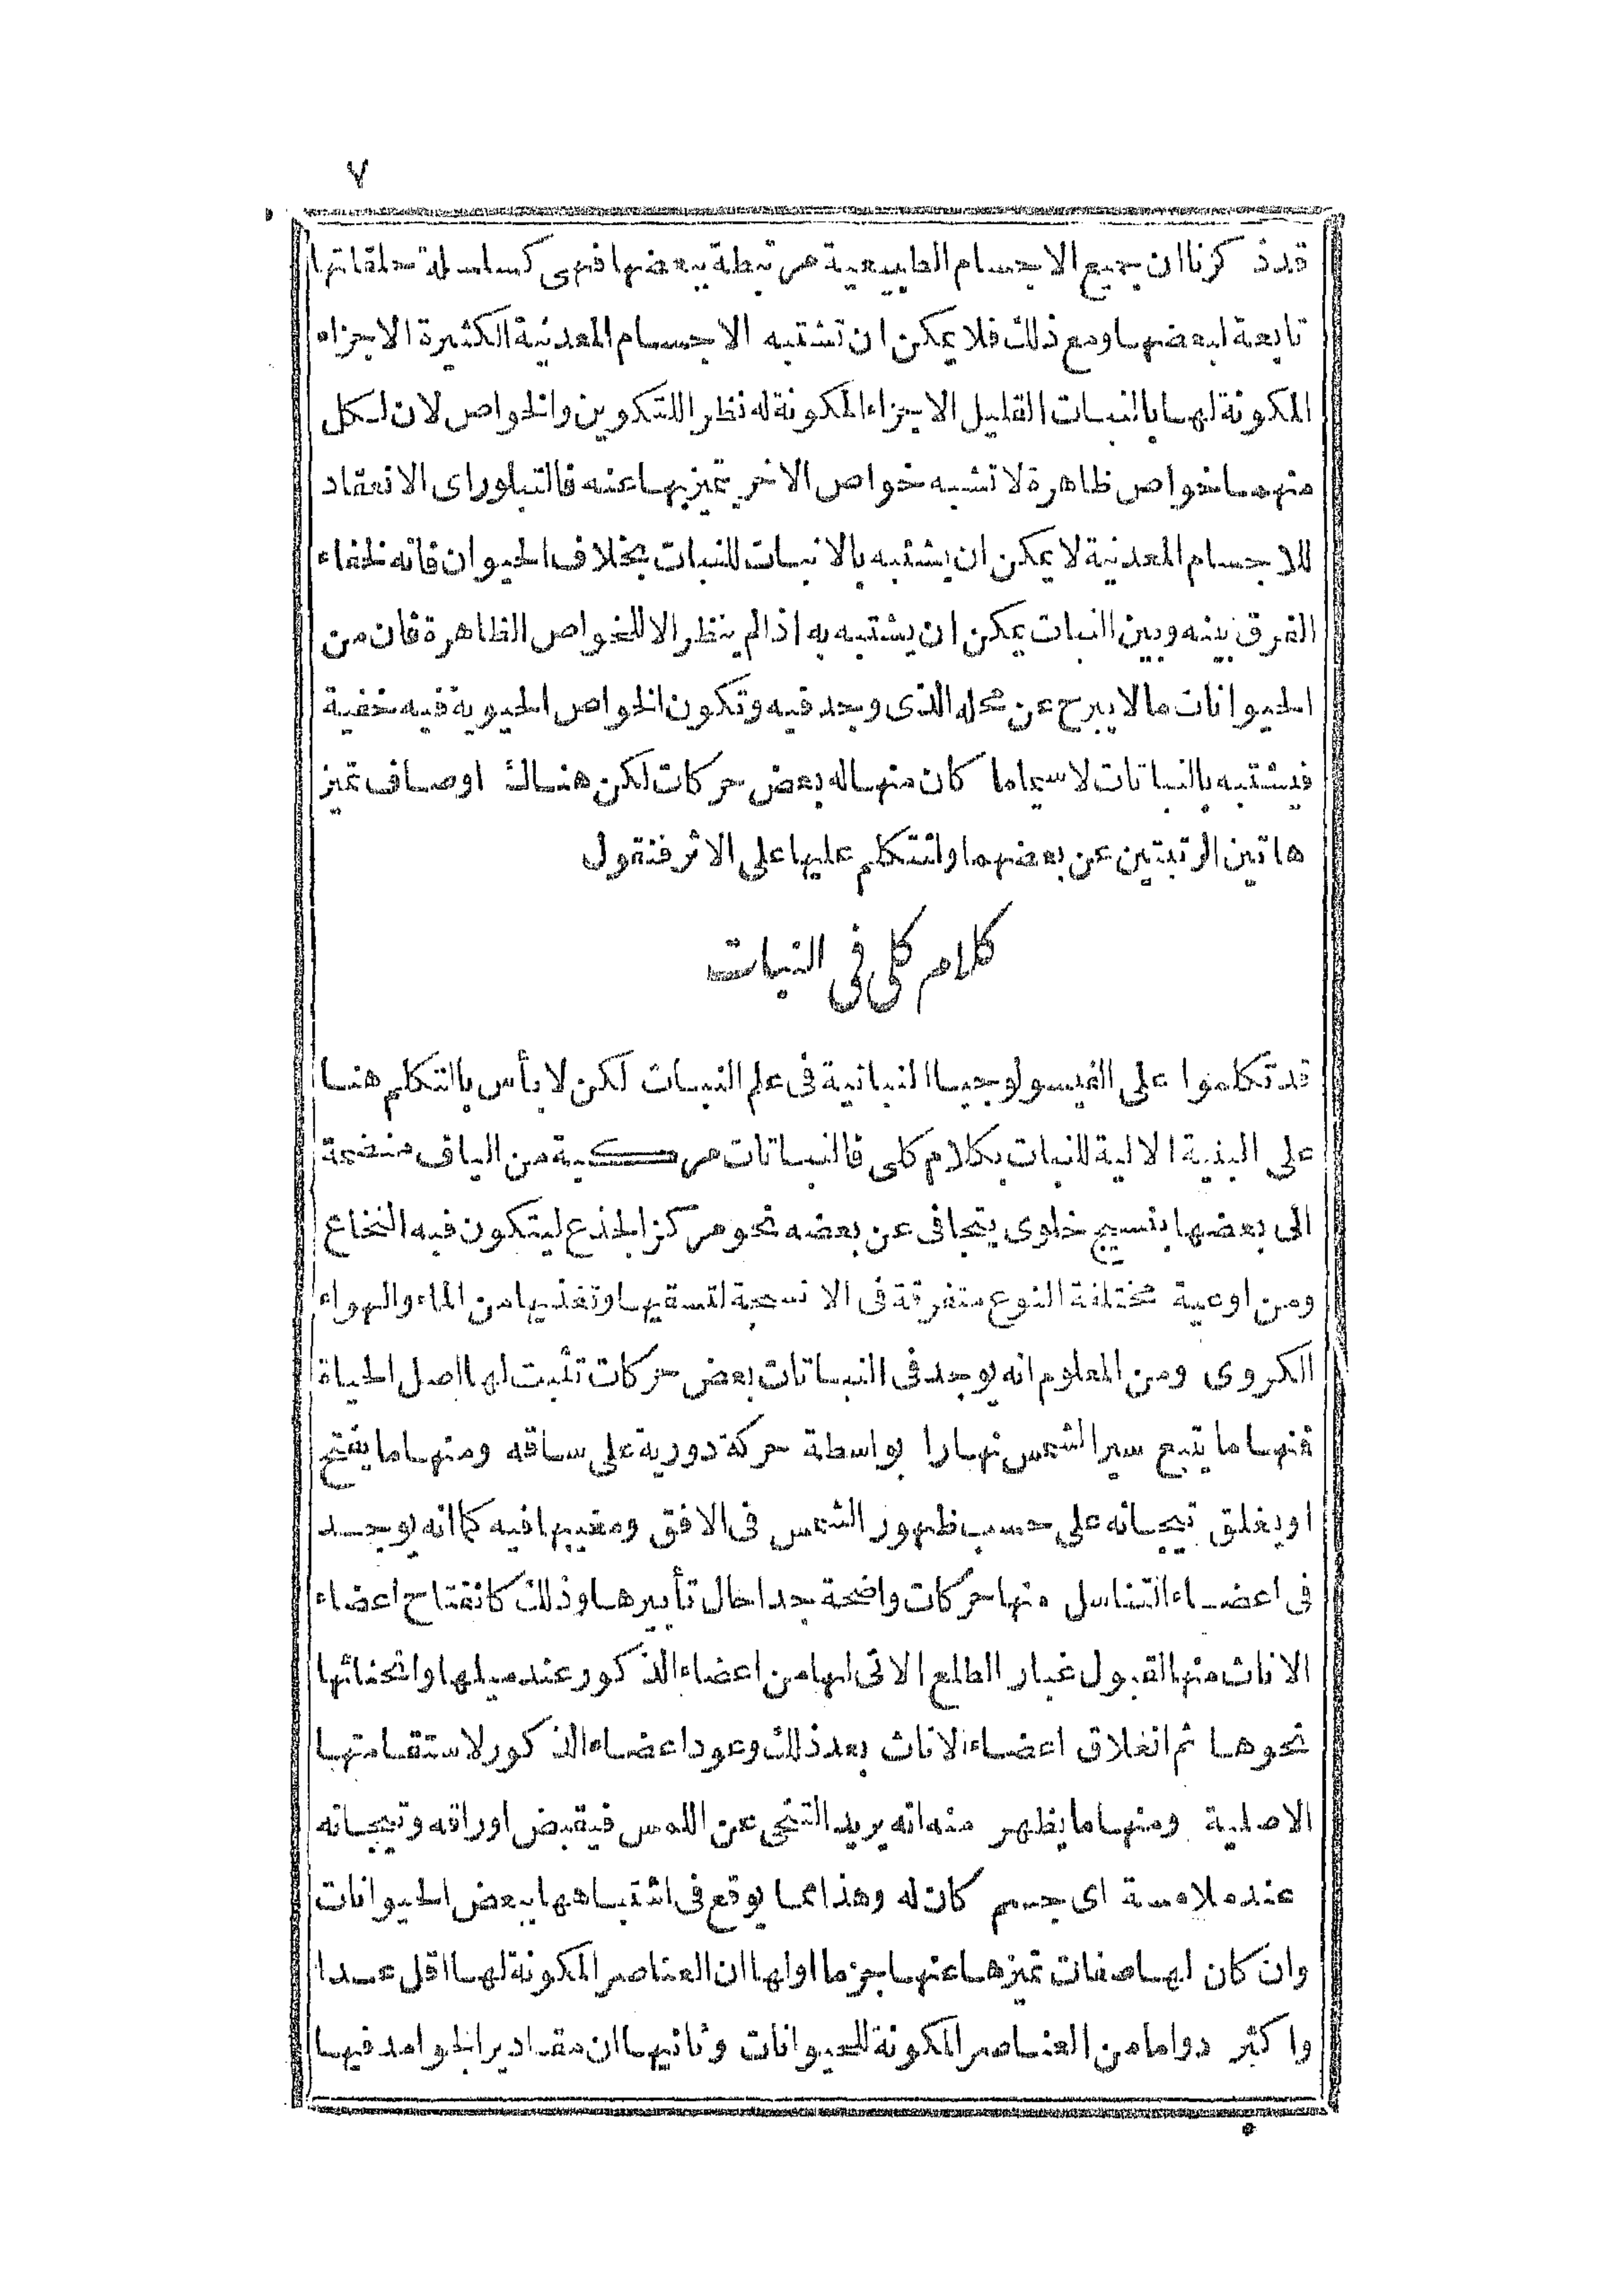 ٧
قد ذكرنا ان جميع الاجسام الطبيعية مرتبطة ببعضها فهى كساسلة حلقاتها
تابعة لبعضها ومع ذلك فلا يمكن ان تشتبه الاجسام المعدنية الكثيرة الاجزاء
المكونة لها بالنبات القليل الاجزاء المكونة له نظرا للتكوين والخواص لان لكل
منهما خواص ظاهرة لا تشبه خواص الاخر تميز بها عنه فالتبلور اى الانعقاد
للاجسام المعدنية لا يمكن ان يشتبه بالانبات للنبات بخلاف الحيوان فانه لخفاء
الفرق بينه وبين النبات يمكن ان يشتبه به اذا لم ينظر الا للخواص الظاهرة فان من
الحيوانات ما لا يبرح عن محله الذى وجد فيه وتكون الخواص الحيوية فيه خفية
فيشتبه بالنباتات لا سيما ما كان منها له بعض حركات لكن هناك اوصاف تميز
هاتين الرتبتين عن بعضهما ولنتكلم عليها على الاثر فنقول
كلام كلى فى النبات
قد تكلموا على الفيسولوجيا النباتية فى علم النبات لكن لا بأس بالتكلم هنا
على البنية الالية للنبات بكلام كلى فالنباتات مركبة من الياف منضمة
الى بعضها بنسيج خلوى يتجافى عن بعضه نحو مركز الجذع ليتكون فيه النخاع
ومن اوعية مختلفة النوع متفرقة فى الانسجة لتسقيها وتغذيها من الماء والهواء
الكروى ومن المعلوم انه يوجد فى النباتات بعض حركات تثبت لها اصل الحياة
فمنها ما يتبع سير الشمس نهارا بواسطة حركة دورية على ساقه ومنها ما يفتح
او يغلق تيجانه على حسب ظهور الشمس فى الافق ومغيبها فيه كما انه يوجد
فى اعضاء التناسل منها حركات واضحة جدا حال تأبيرها وذلك كانفتاح اعضاء
الاناث منها لقبول غبار الطلع الاتى لها من اعضاء الذكور عند ميلها وانحنائها
نحوها ثم انغلاق اعضاء الاناث بعد ذلك وعود اعضاء الذكور لاستقامتها
الاصلية ومنها ما يظهر منه انه يريد التنحى عن اللمس فيقبض اوراقه وتيجانه
عند ملامسة اى جسم كان له وهذا مما يوقع فى اشتباهها ببعض الحيوانات
وان كان لها صفات تميزها عنها جزما اولها ان العناصر المكونة لها اقل عددا
واكثر دواما من العناصر المكونة للحيوانات وثانيها ان مقادير الجوامد فيها